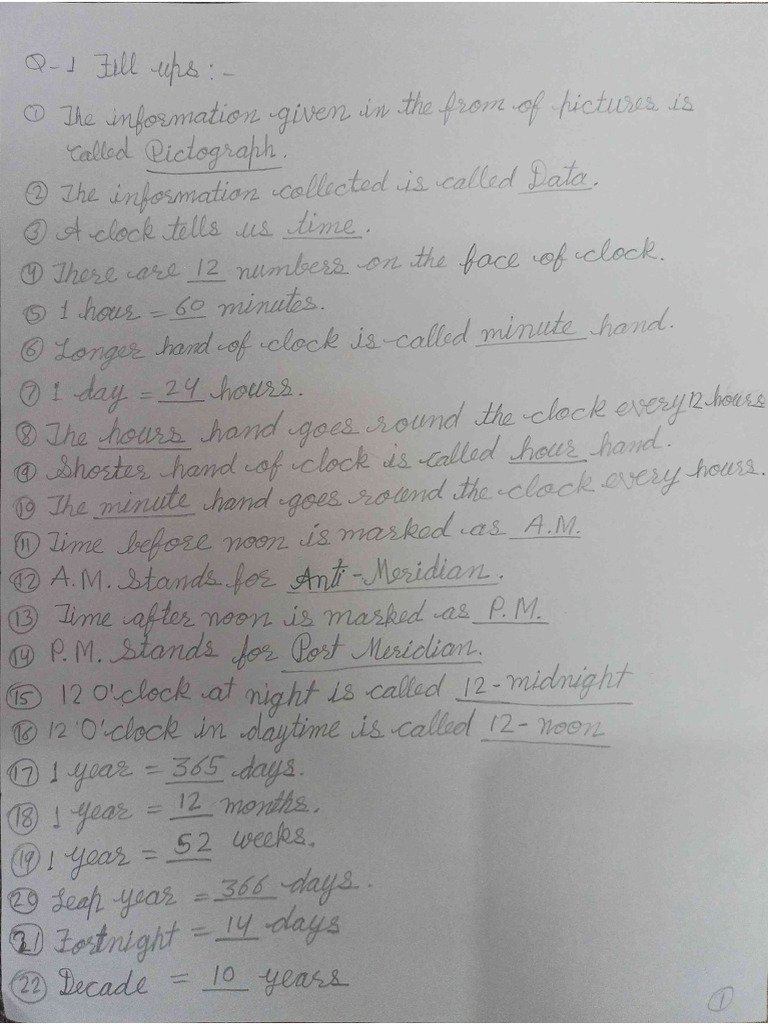 Q-1 Fill ups:-
① The information given in the from of pictures is
called Pictograph.
② The information collected is called Data.
③ A clock tells us time.
④ There are 12 numbers on the face of clock.
⑤ 1 hour = 60 minutes.
⑥ Longer hand of clock is called minute hand.
⑦ 1 day = 24 hours.
⑧ The hours hand goes round the clock every 12 hours
⑨ Shorter hand of clock is called hour hand.
⑩ The minute hand goes round the clock every hours.
⑪ Time before noon is marked as A.M.
⑫ A.M. Stands for Anti-Meridian.
⑬ Time after noon is marked as P.M.
⑭ P.M. Stands for Port Meridian.
⑮ 12 O'clock at night is called 12-midnight
⑯ 12 'O'clock in daytime is called 12-noon
⑰ 1 year = 365 days.
⑱ 1 year = 12 months.
⑲ 1 year = 52 weeks.
⑳ Leap year = 366 days.
㉑ Fortnight = 14 days
㉒ Decade = 10 years
①